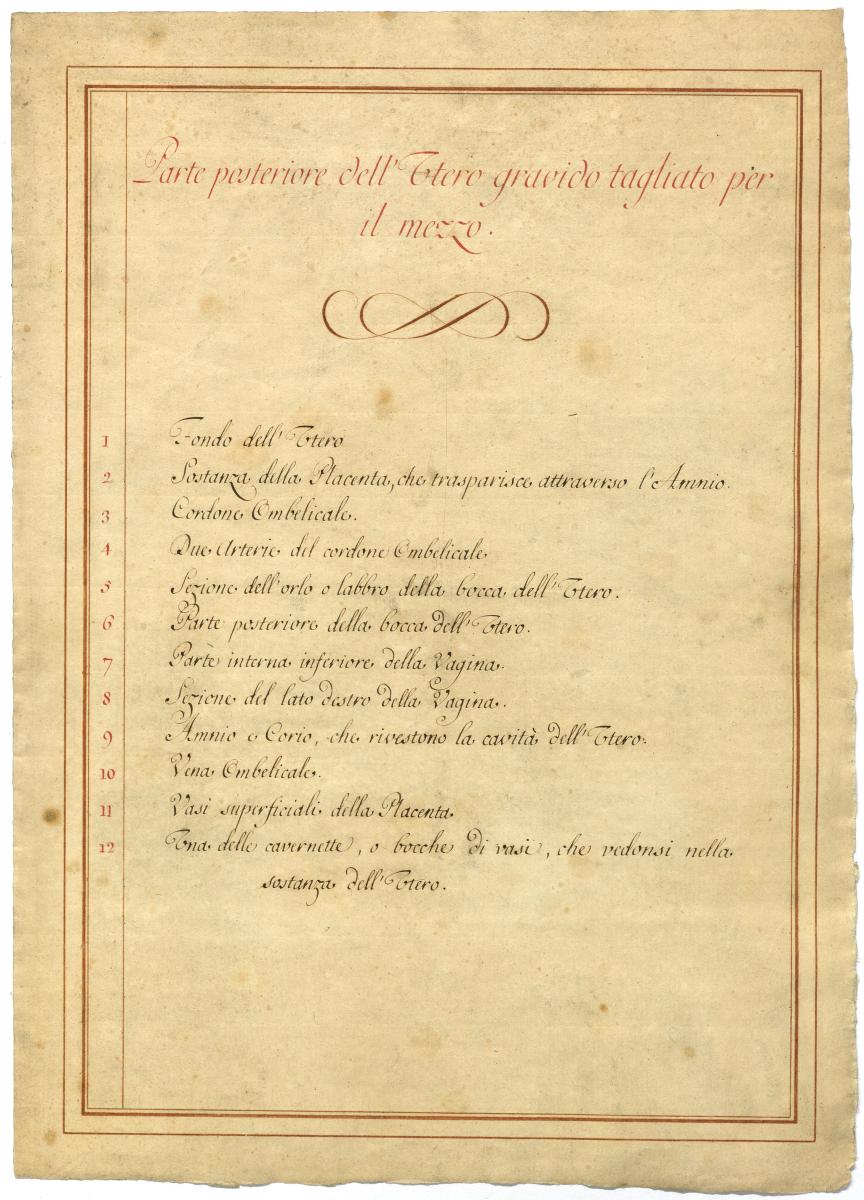 Parte posteriore dell'Utero gravido tagliato per
il mezzo.
1 Fondo dell'Utero
2 Sostanza della Placenta, che trasparisce attraverso l'Amnio.
3 Cordone Ombelicale.
4 Due Arterie del cordone Ombelicale
5 Sezione dell'orlo o labbro della bocca dell'Utero.
6 Parte posteriore della bocca dell'Utero.
7 Parte interna inferiore della Vagina.
8 Sezione del lato destro della Vagina.
9 Amnio e Corio, che rivestono la cavità dell'Utero.
10 Vena Ombelicale.
11 Vasi superficiali della Placenta
12 Una delle cavernette, o bocche di vasi, che vedonsi nella
sostanza dell'Utero.